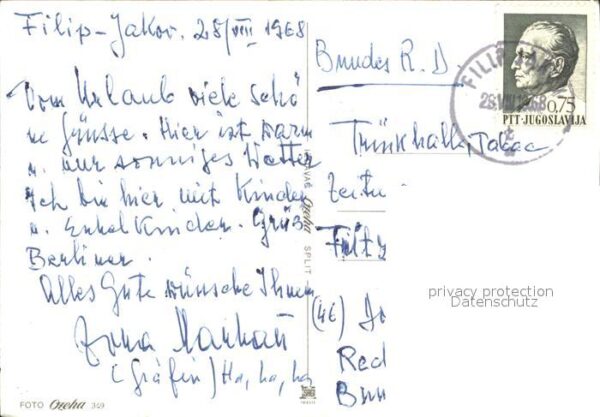 Filip-Jakov. 25/VIII 1968
Vom Urlaub viele schö
ne Grüsse. Hier ist warm
u. nur sonniges Wetter
Ich bin hier mit Kinder
u. Enkelkinder. Grüß
Berliner.
Alles Gute wünsche Ihnen
(Gräfin) Ha, ha, ha
FOTO Ozeha 349
Ozeha SPLIT
Bundes R. D
Trinkhalle, Tabac
Zeitu
Fritz
(46) Do
Red
Bun
FILIP JAKOV
26.VIII.1968
0,75
PTT-JUGOSLAVIJA
privacy protection
Datenschutz